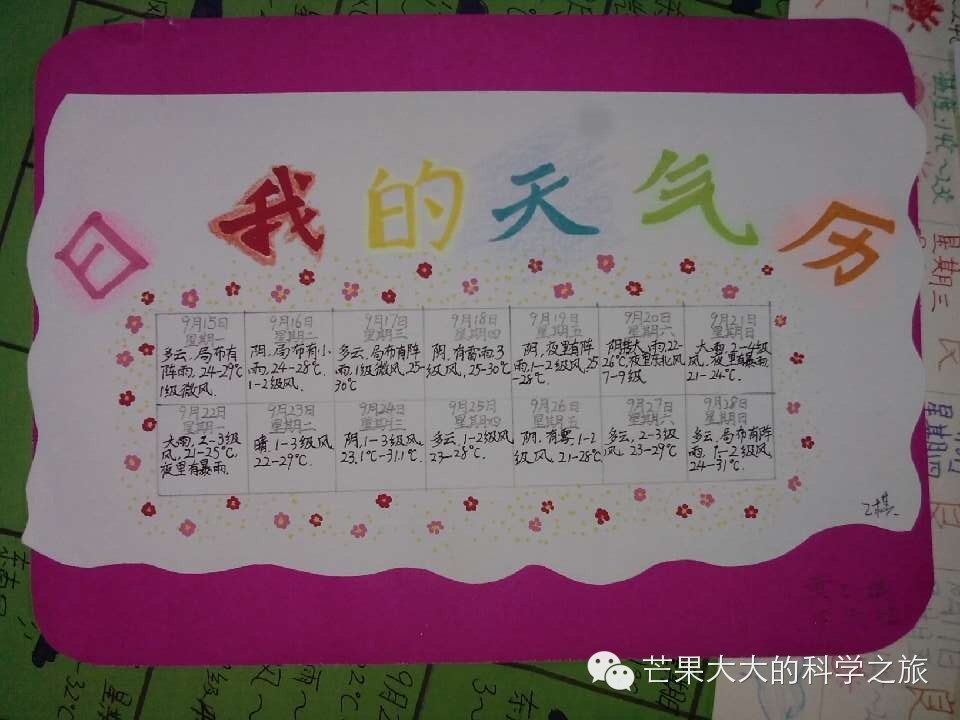 日 我的天气历
9月15日
星期一
多云,局布有
阵雨,24-29℃
1级微风.
9月16日
星期二
阴,局布有小
雨,24-28℃,
1-2级风.
9月17日
星期三
多云,局布有阵
雨,1级微风,25-
30℃
9月18日
星期四
阴,有雷雨,3
级风,25-30℃
9月19日
星期五
阴,夜里有阵
雨,1-2级风,25
-28℃.
9月20日
星期六
阴转大雨,22-
26℃,夜里东北风
7-9级
9月21日
星期日
大雨,2-4级
风,夜里有暴雨,
21-24℃.
9月22日
星期一
大雨,2-3级
风,21-25℃,
夜里有暴雨.
9月23日
星期二
晴,1-3级风
22-29℃.
9月24日
星期三
阴,1-3级风
23.1℃-31.1℃.
9月25日
星期四
多云,1-2级风
23-28℃.
9月26日
星期五
阴,有雾,1-2
级风,21-28℃
9月27日
星期六
多云,2-3级
风,23-29℃
9月28日
星期日
多云,局布有阵
雨,1-2级风,
24-31℃.
星期三
星期四
9月2
32℃
芒果大大的科学之旅